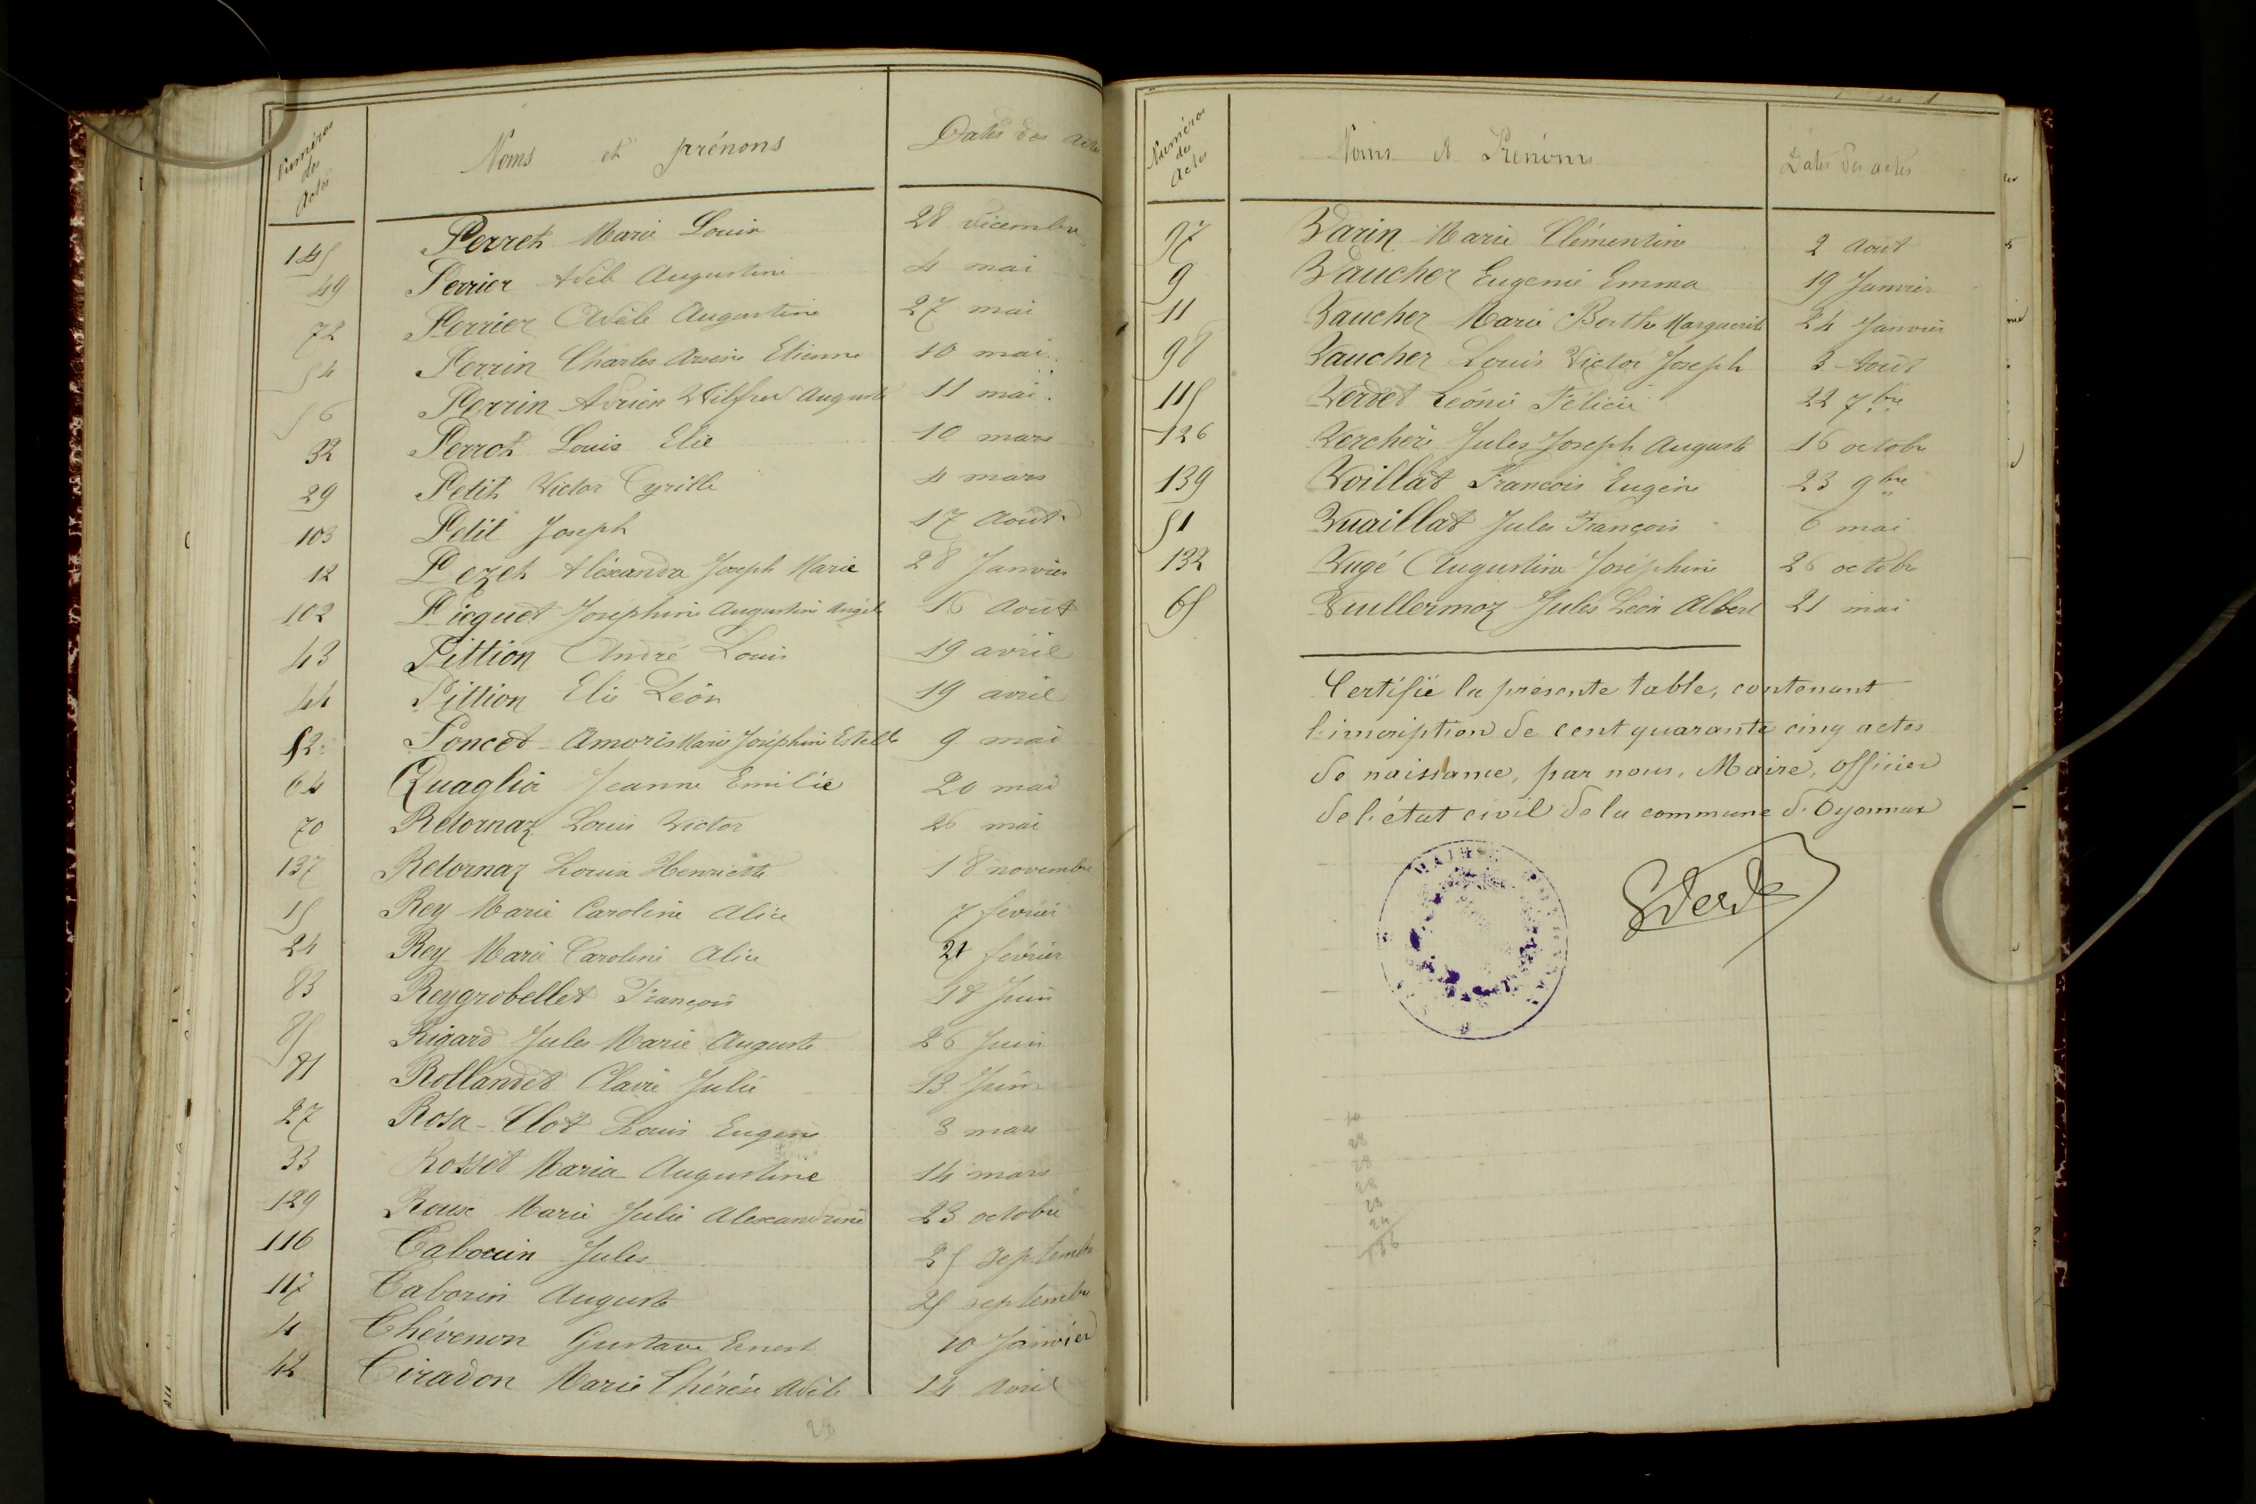 Numéros des Actes Noms et prénoms Dates des actes
145 Perret Marie Louise 28 décembre
49 Perrier Adèle Augustine 4 mai
72 Perrier Adèle Augustine 27 mai
54 Perrin Charles Arsène Etienne 10 mai
56 Perrin Adrien Wilfred Auguste 11 mai
32 Perrot Louis Elie 10 mars
29 Petit Victor Cyrille 4 mars
103 Petit Joseph 17 Août
12 Pezet Alexandre Joseph Marie 28 Janvier
102 Picquet Joséphine Augustine Angèle 16 Août
43 Pittion André Louis 19 avril
44 Pittion Elie Léon 19 avril
52 Poncet Amoris Marie Joséphine Estelle 9 mai
64 Quaglia Jeanne Emilie 20 mai
70 Retornaz Louis Victor 26 mai
137 Retornaz Louise Henriette 18 novembre
15 Rey Marie Caroline Alice 7 février
24 Rey Marie Caroline Alice 21 février
83 Reygrobellet François 18 Juin
85 Rigard Jules Marie Auguste 26 Juin
81 Rollandet Clavie Julie 13 Juin
27 Rosa-Clot Louis Eugène 3 mars
33 Rosset Maria Augustine 14 mars
129 Roux Marie Julie Alexandrine 23 octobre
116 Tabouin Jules 25 septembre
117 Tabouin Auguste 25 septembre
4 Thévenon Gustave Ernest 10 Janvier
42 Tiradon Marie Thérèse Adèle 14 Avril
28
Numéros des Actes Noms et Prénoms Dates des actes
97 Varin Marie Clémentine 2 Août
9 Vaucher Eugenie Emma 19 Janvier
11 Vaucher Marie Berthe Marguerite 24 Janvier
98 Vaucher Louis Victor Joseph 3 Août
115 Verdet Léonie Félicie 22 7bre
126 Verchère Jules Joseph Auguste 16 octobre
139 Voillat François Eugène 23 9bre
51 Vuaillat Jules François 6 mai
132 Vugé Augustine Joséphine 26 octobre
65 Vuillermoz Jules Léon Albert 21 mai
Certifié la présente table, contenant
l'inscription de cent quarante cinq actes
de naissance, par nous, Maire, officier
de l'état civil de la commune d'Oyonnax
28
28
28
23
24